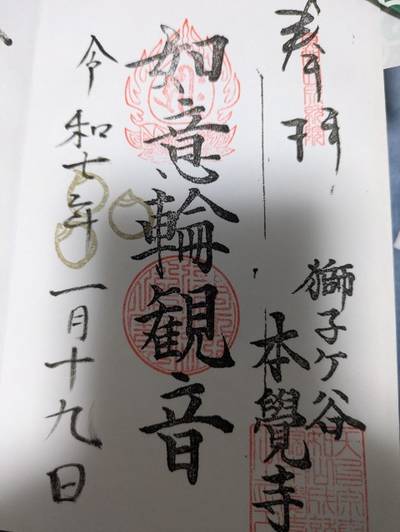 奉拝
獅子ケ谷
本覺寺
如意輪観音
令和七年一月十九日